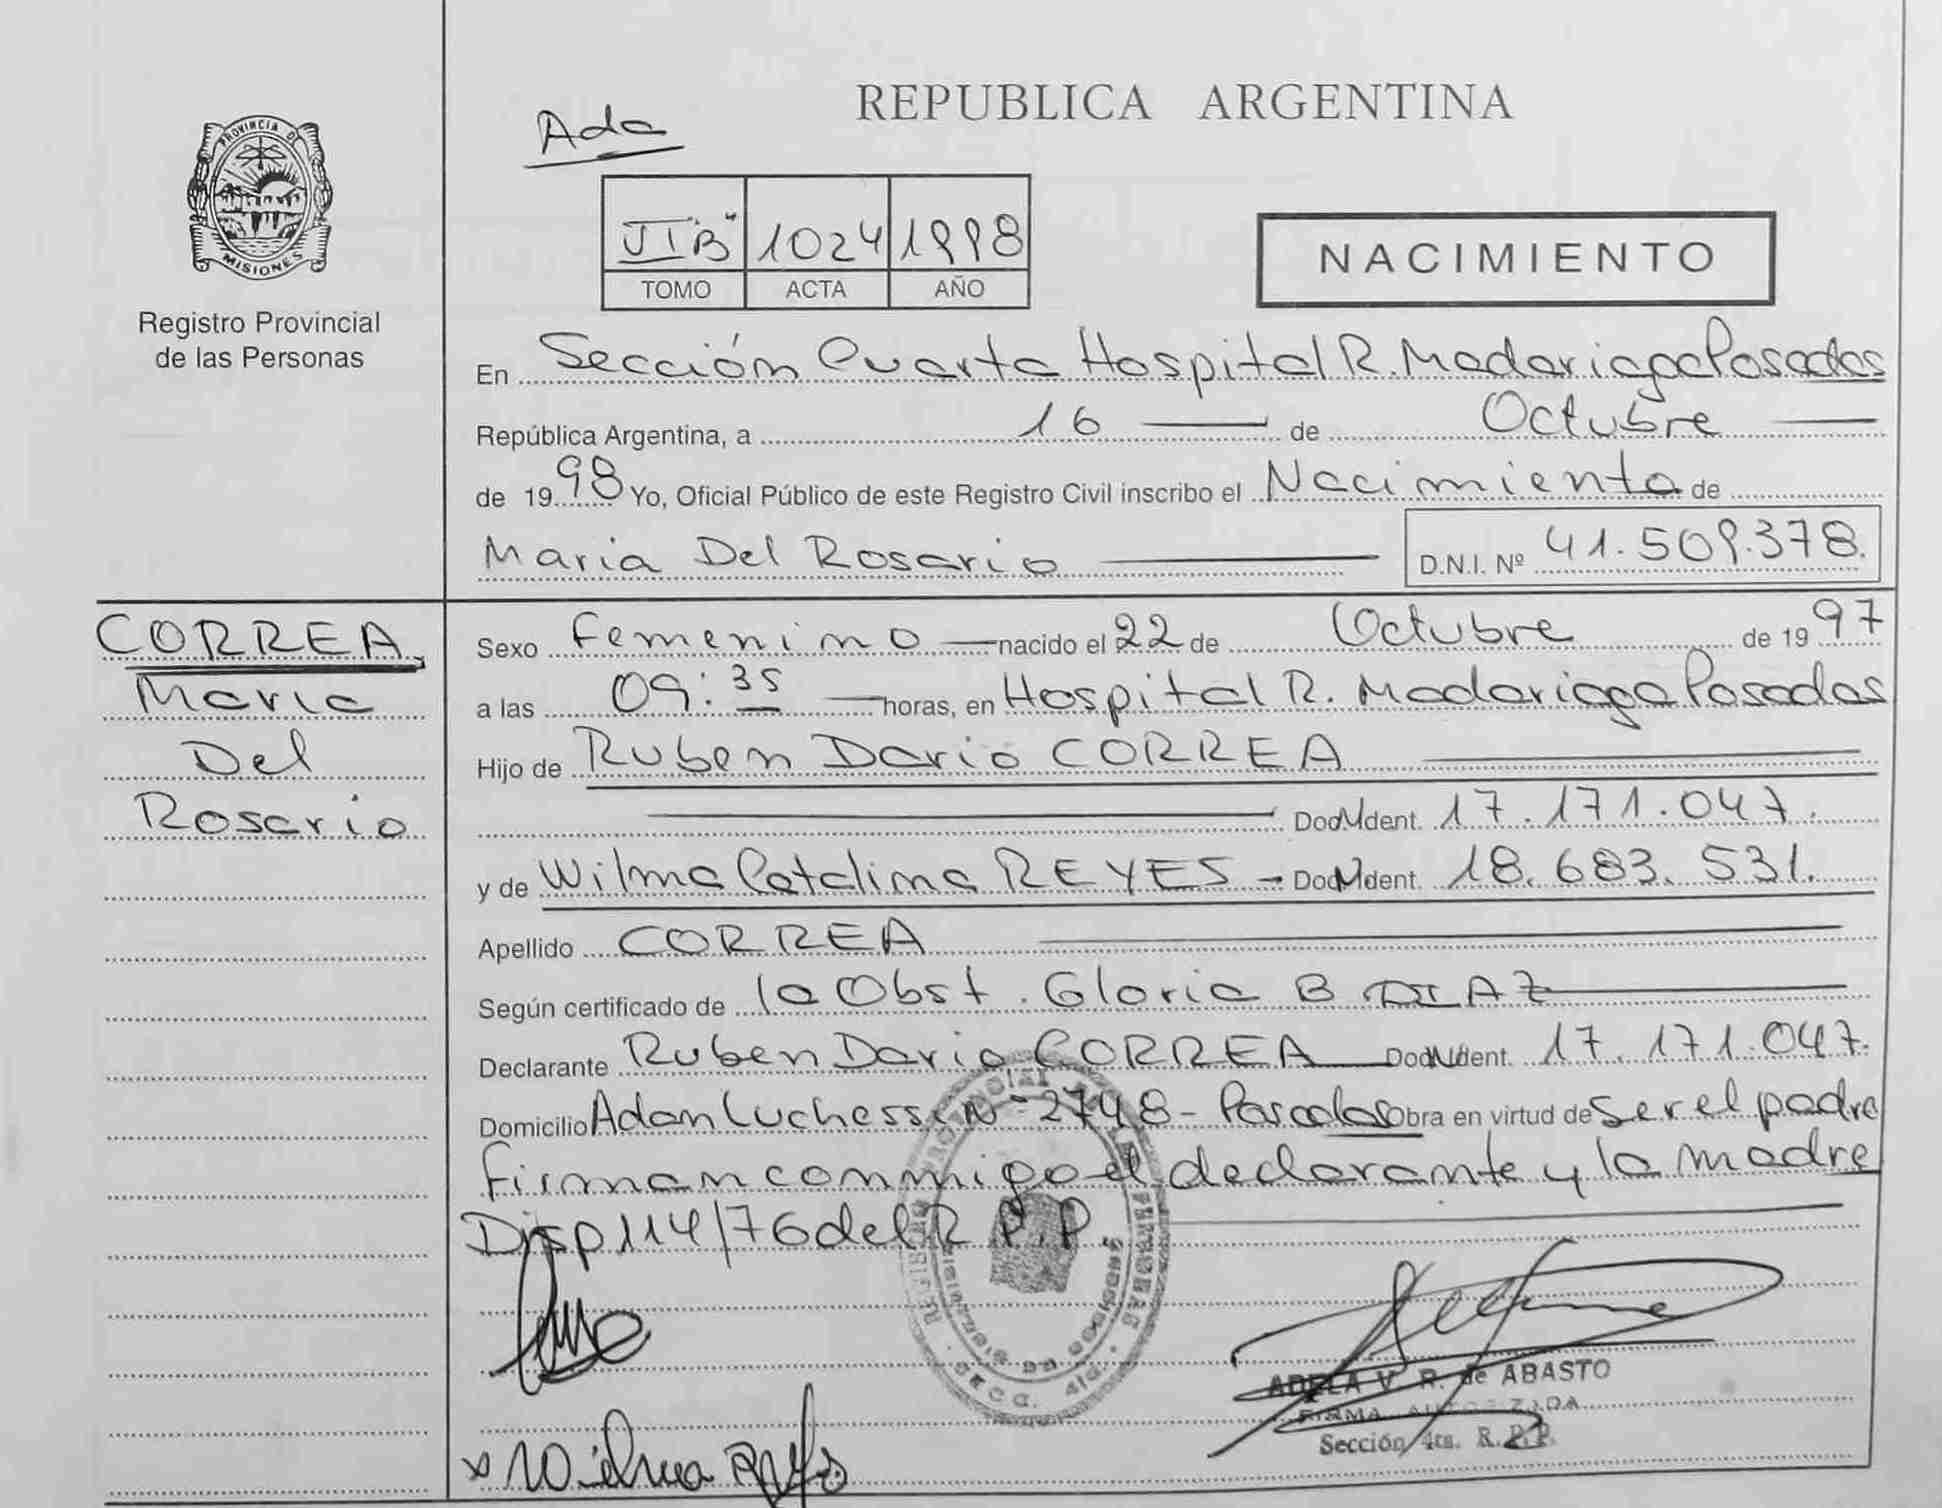 REPUBLICA ARGENTINA
Ada
PROVINCIA D
MISIONES
Registro Provincial
de las Personas
II "B" 1024 1998
TOMO ACTA AÑO
NACIMIENTO
En Sección Cuarta Hospital R. Madariaga Posadas
República Argentina, a 16 de Octubre
de 1998 Yo, Oficial Público de este Registro Civil inscribo el Nacimiento de
Maria Del Rosario D.N.I. Nº 41.509.378.
CORREA
Maria
Del
Rosario
Sexo Femenino nacido el 22 de Octubre de 1997
a las 09:35 horas, en Hospital R. Madariaga Posadas
Hijo de Ruben Dario CORREA
Doc. Ident. 17.171.047.
y de Wilma Catalina REYES - Doc. Ident. 18.683.531.
Apellido CORREA
Según certificado de la Obst. Gloria B DIAZ
Declarante Ruben Dario CORREA Doc. Ident. 17.171.047.
Domicilio Adan Luchessi Nº 2748 - Posadas obra en virtud de ser el padre
firman conmigo el declarante y la madre
Disp 114/76 del R.P.P.
REGISTRO PROVINCIAL DE LAS PERSONAS
SECC. 4ta.
ADELA V. R. de ABASTO
FIRMA AUTORIZADA
Sección 4ta. R.P.P.
x Wilma Reyes